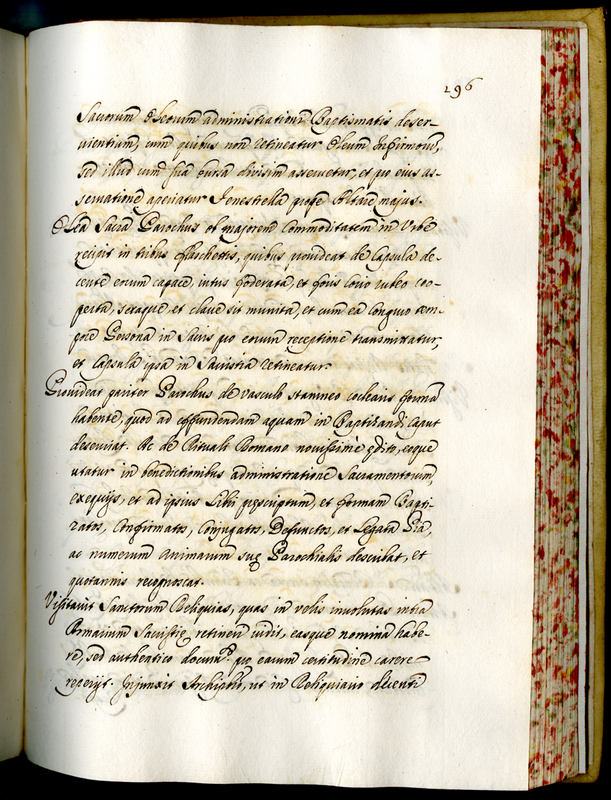 296
Sacrorum Oleorum administrationi Baptismatis deser-
vientium, cum quibus non retineatur Oleum Infirmorũ,
sed illud cum sua bursa divisim asservetur, et pro eius as-
servatione aperiatur Fenestrella prope Altare majus.
Olea Sacra Parochus ob majorem commoditatem in Urbe
recipit in tribus flaschettis, quibus provideat de Capsula de-
centi eorum capace, intus foderata, et foris corio rubeo coo-
perta, seraque, et clave sit munita, et cum ea congruo tem-
pore Persona in Sacris pro eorum receptione transmittatur,
et Capsula ipsa in Sacristia retineatur.
Provideat pariter Parochus de vasculo stanneo coclearis formã
habente, quod ad effundendam aquam in Baptizandi Caput
deserviat. Ac de Rituali Romano novissime edito, eoque
utatur in benedictionibus administratione Sacramentorum,
exequijs, et ad ipsius Libri prescriptum, et formam Bapti-
zatos, Confirmatos, Conjugatos, Defunctos, et Legata Pia,
ac numerum animarum suę Parochialis describat, et
quotannis recognoscat.
Visitavit Sanctorum Reliquias, quas in velis involutas intra
Armarium Sacristię retineri vidit, easque nomina habe-
re, sed authentico docum.to pro earum certitudine carere
reperijt. Injunxit Archipbro, ut in Reliquiario decenti